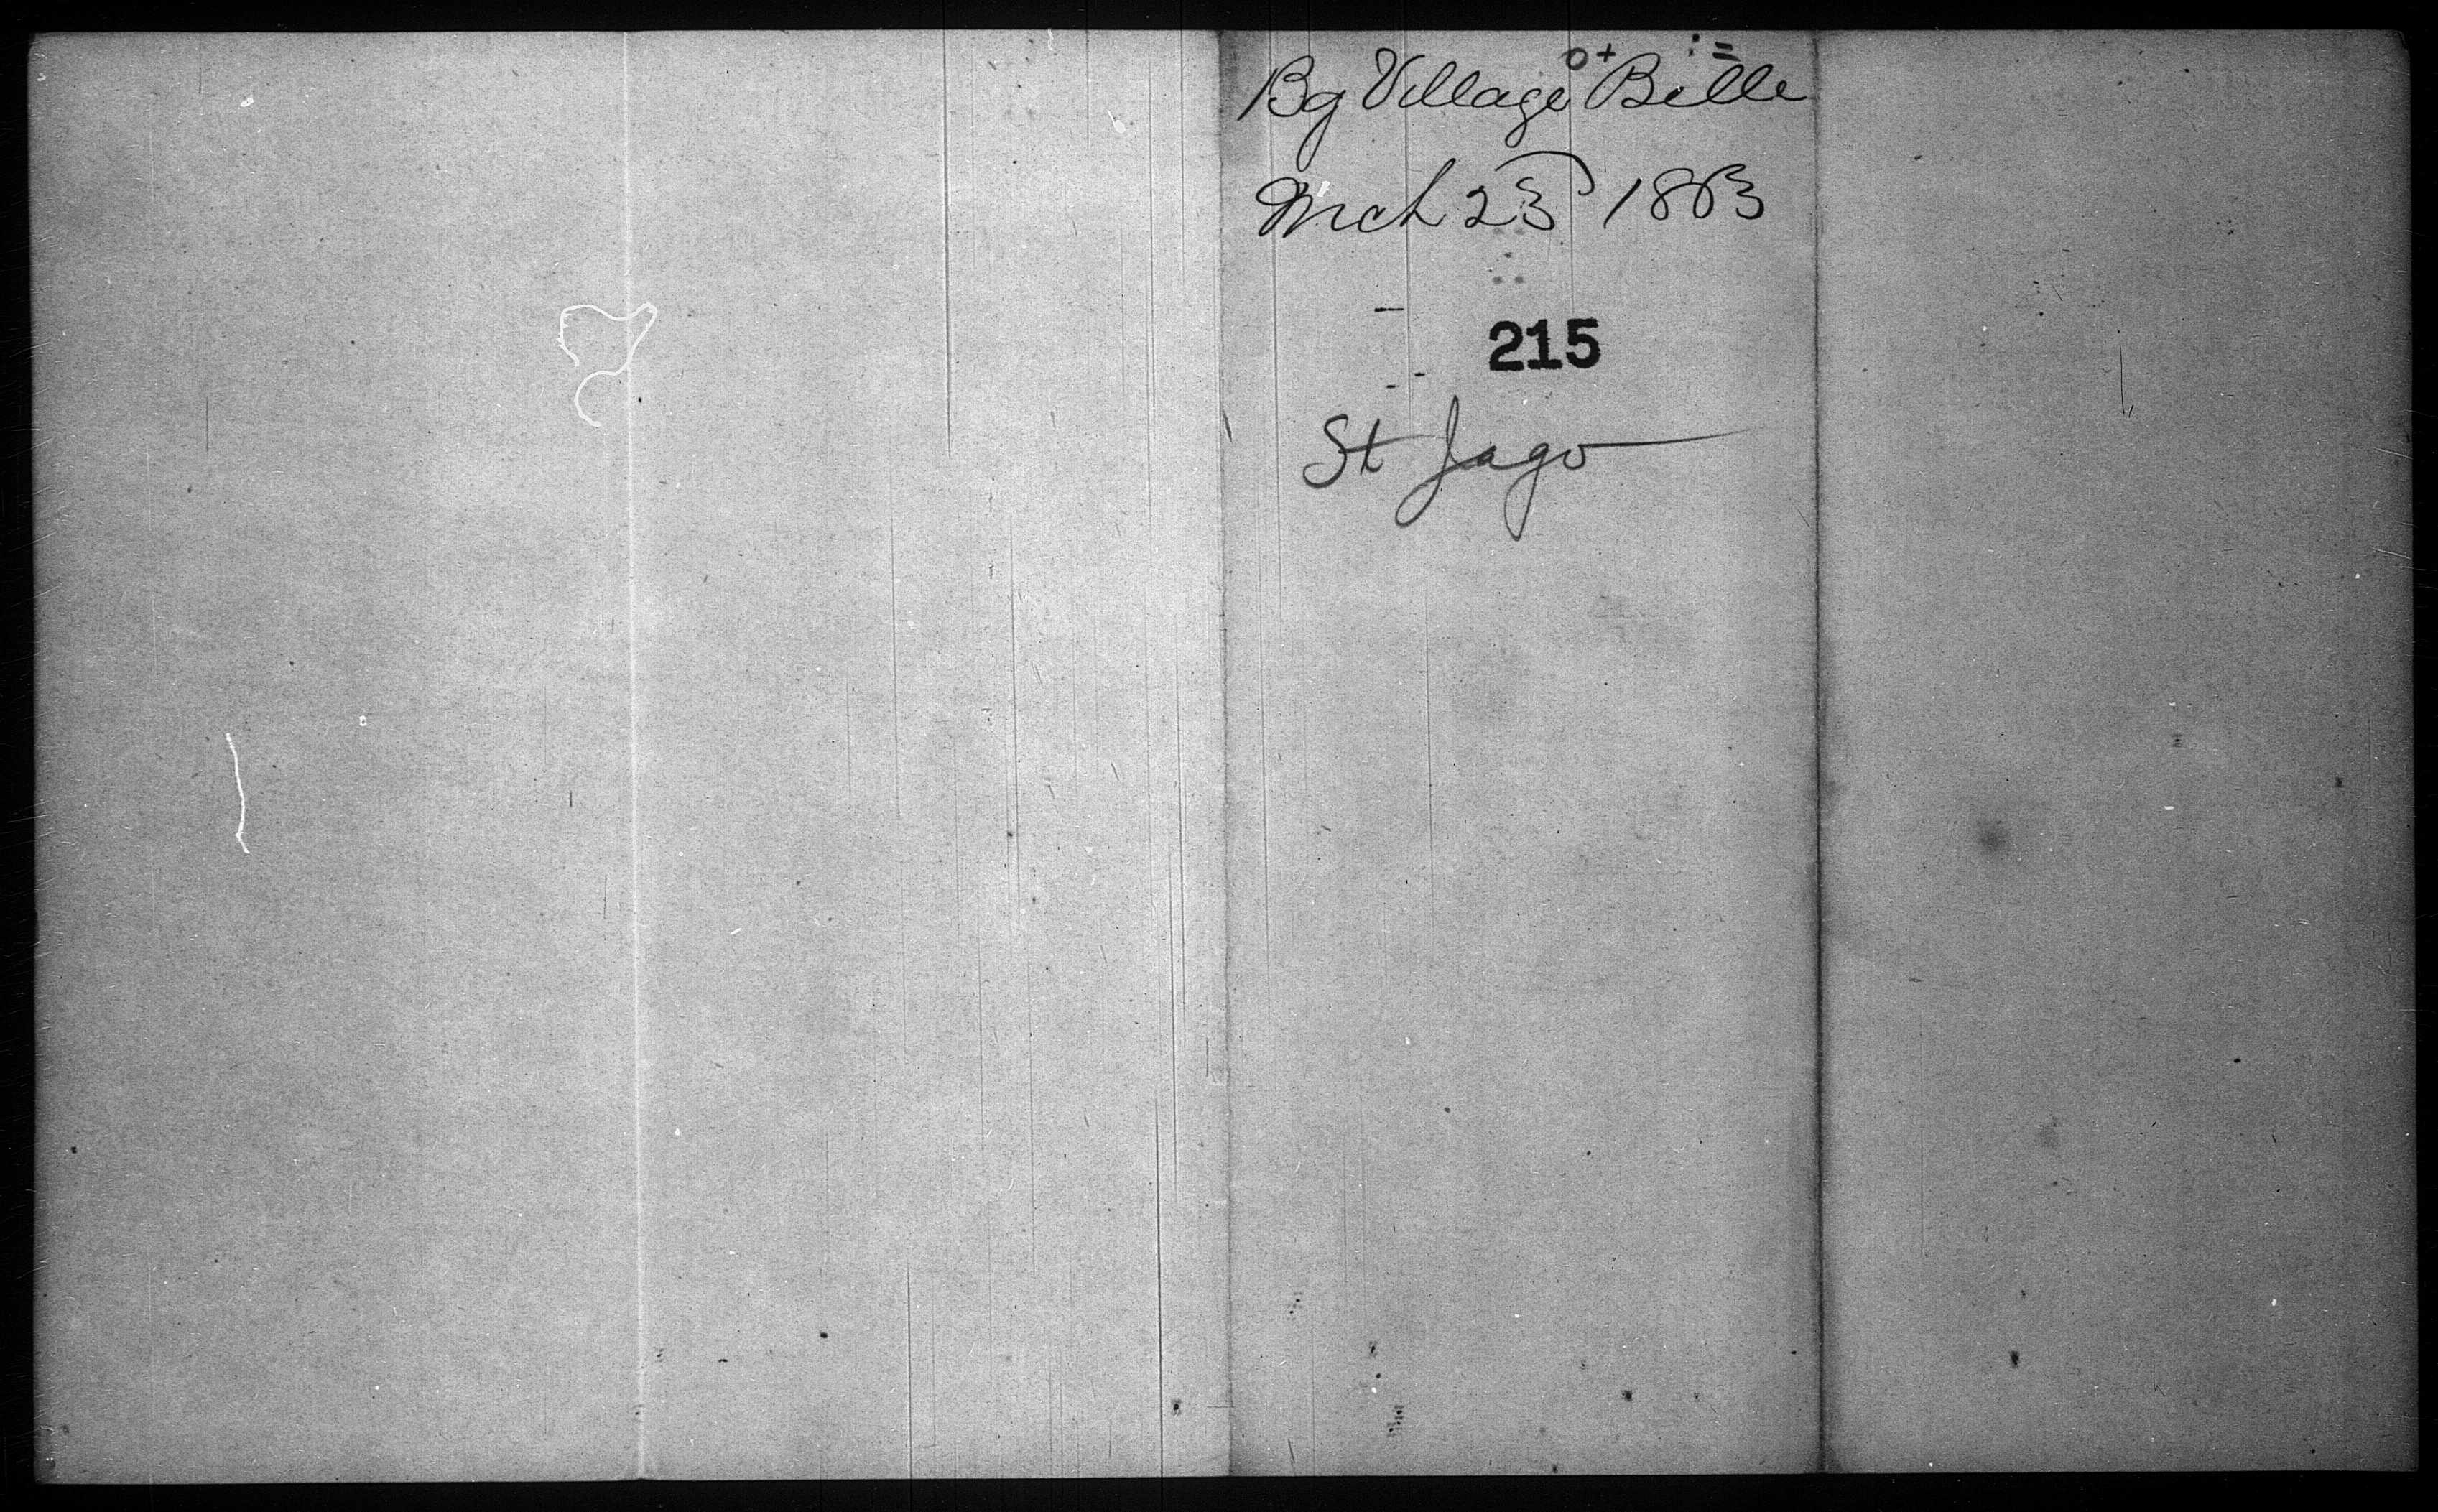 Bg Village Belle
Mch 23 1863
215
St Jago